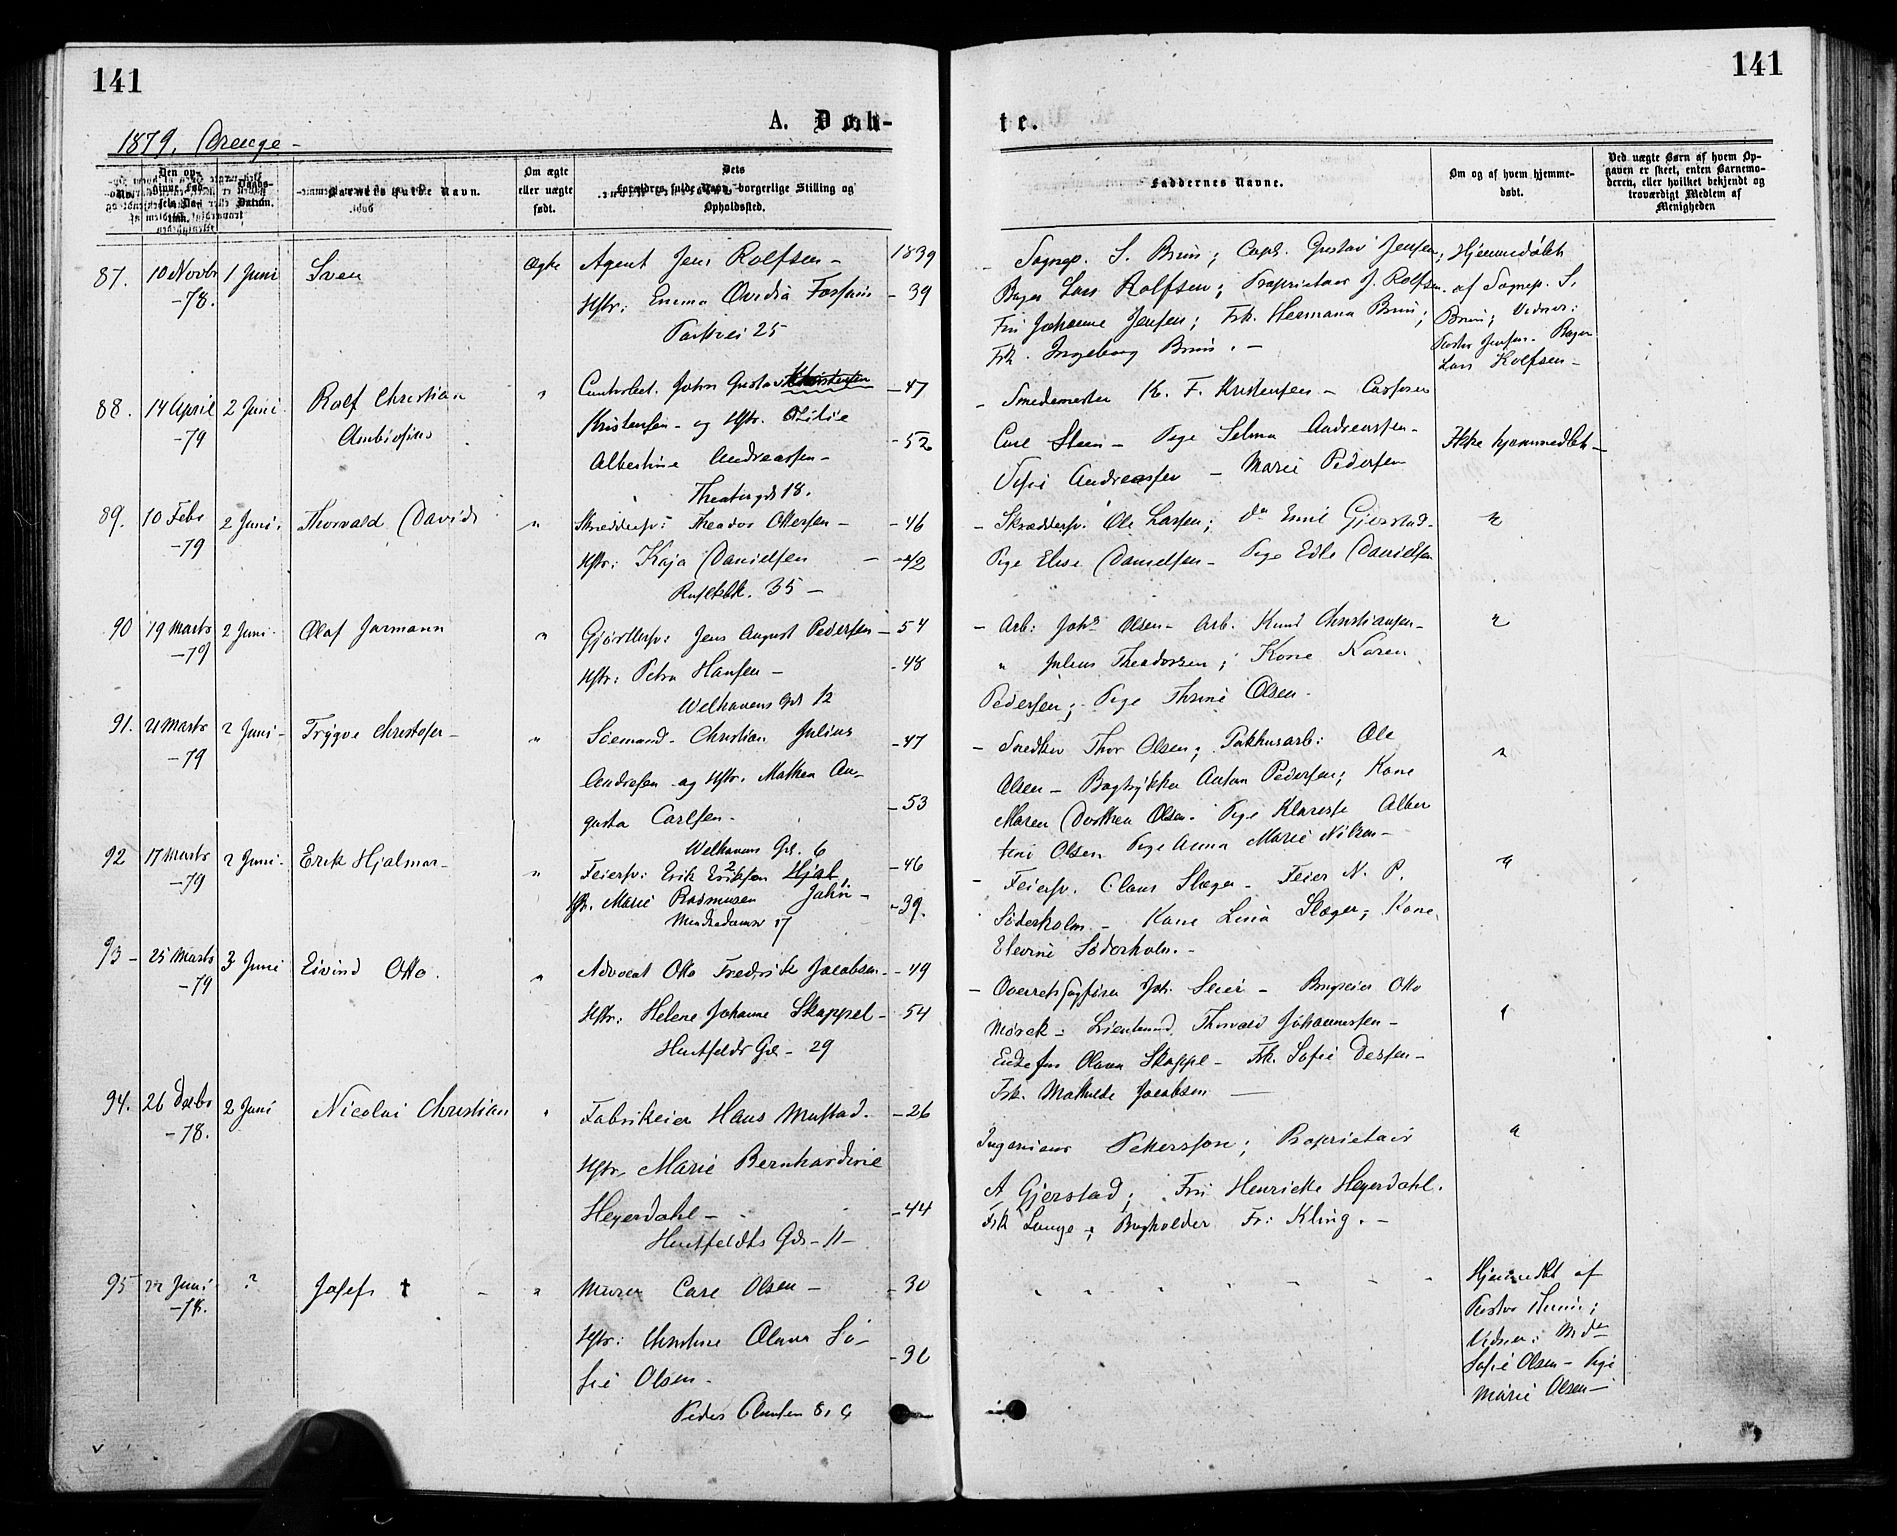 141
141
A. Døb-
te.
1879. Drenge -
Barnets fulde Navn.
Om ægte
eller uægte
født.
Dets
Forældres fulde Navn, borgerlige Stilling og
Opholdssted.
Faddernes Navne.
Om og af hvem hjemme-
døbt.
Ved uægte Børn af hvem Op-
gaven er skeet, enten Barnemo-
deren, eller hvilket bekjendt og
troværdigt Medlem af
Menigheden
87. 10 Novbr 1 Juni Sven Ægte Agent Jens Rolfsen - 1839
-78. Hstr: Emma Ovidia - 39
Parkvei 25
Sognep. S. Bruun; Capt. Gustav Jensen, Hjemmedøbt
Lars Rolfsen; Proprietair J. Rolfsen. af Sognep. S.
Fru Johanne Jensen; Frk. Hermana Bruun; Bruun; Vidner:
Frk. Ingeborg Bruun. -
Lars Rolfsen -
88. 14 April 2 Juni Rolf Christian " John Gustav Kristensen - 47
-79 Ambrosius Kristensen - og Hstr. Otilie - 52
Albertine Andreassen -
Theatergd 18.
- Smedemester K. F. Kristensen -
Carl Steen - Pige Selma Andreassen - Ikke hjemmedøbt -
Andreassen - Marie Pedersen
89. 10 Febr 2 Juni. Thorvald David " Skreddersv: Theodor Ottersen - - 46
-79 Hstr: Kaja Danielsen - - 42
35 -
- Skræddersv. Ole Larsen; do Emil Gjerstad - "
Pige Elise Danielsen - Pige Edle Danielsen
90 19 Marts 2 Juni - Olaf Jarmann " Gjørtlersv: Jens August Pedersen - 54
-79 Hstr: Petra Hansen - - 48
Welhavens Gd 12
- Arb: Johs Olsen - Arb. Knud Christiansen - "
" Julius Theodorsen; Kone Karen
Pedersen; Pige Thrine Olsen -
91. 21 Marts 2 Juni - Trygve Christofer - " Sømand - Christian Julius - 47
-79 Andresen og Hstr. Mathea Au- - 53
gusta Carlsen -
Welhavens Gd. 6
- Snedker Thor Olsen; Pakhusarb: Ole "
Olsen - Bogtrykker Anton Pedersen; Kone
Maren Dorthea Olsen. Pige Klaresse Alber
tine Olsen Pige Anna Marie Nilsen -
92 17 Marts 2 Juni - Erik Hjalmar - " Feiersv: Erik Eriksen Hjal - 46
-79 Hstr. Marie Rasmusen Jahn - - 39.
17
- Feiersv. Claus Slager - Feier N. P. "
Søderholm - Kone Lina Slager; Kone
Elevine Søderholm. -
93 - 25 Marts 3 Juni Eivind Otto. " Advocat Otto Fredrik Jacobsen - - 49
-79 Hstr: Helene Johanne Skappel - - 54
Huitfeldts Gd - 29
- Overretssagfører Joh. Seier - Otto
Mørck - Thorvald Johannessen -
Olava Skappel - Frk. Sofie
Frk. Mathilde Jacobsen -
94. 26 Decbr 2 Juni Nicolai Christian " Fabrikeier Hans Mustad. - 26
-78. Hstr. Marie Bernhardine
Heyerdahl - - 44
Huitfeldts Gd - 11 -
Ingeniør Pettersson; Proprietair "
A Gjerstad; Fru Henricke Heyerdahl.
Frk Lange; Bogholder Fr: Kling. -
95 22 Juni ? Josef † - " Murer Carl Olsen - - 30
-78. Hstr: Christine Olava So-
fie Olsen - - 30
Peder 8, 4
Hjemmedøbt af
Pastor
Vidner:
Sofie Olsen - Pige
Marie Olsen -